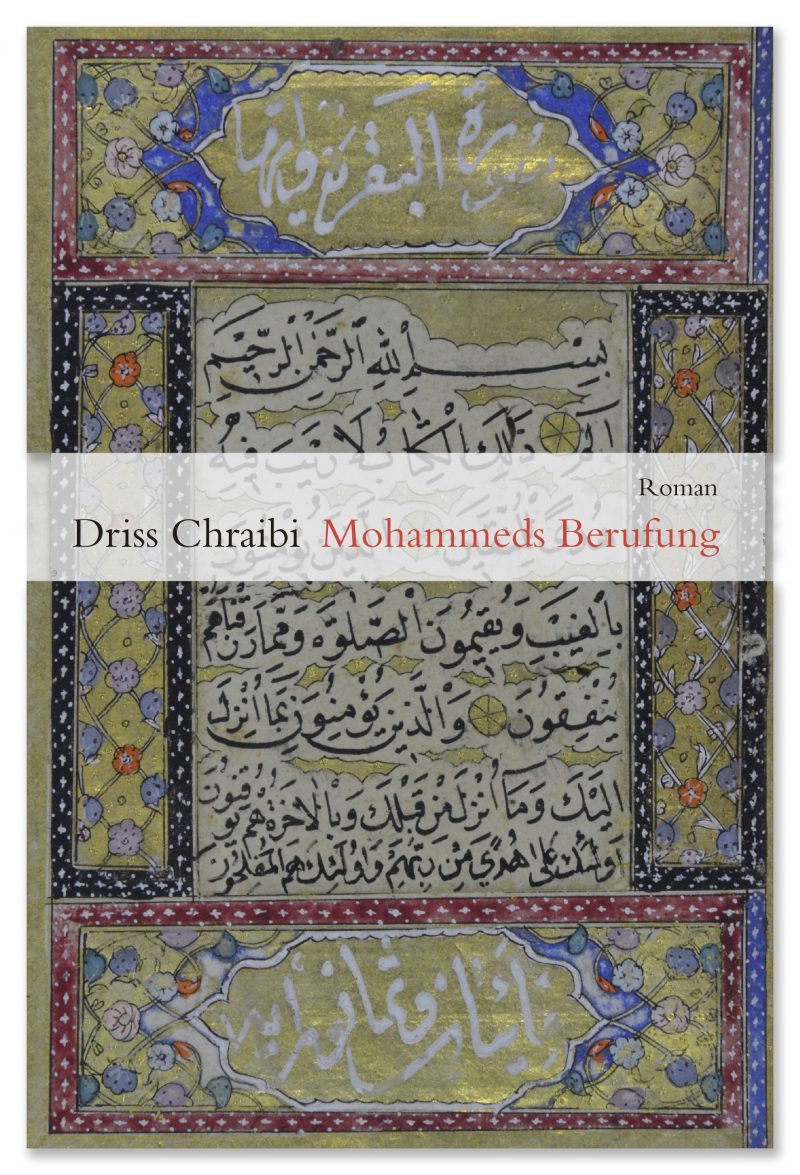 سورة البقرة وايتها
بِسْمِ اللهِ الرَّحْمٰنِ الرَّحِيْمِ
الم ذٰلِكَ الْكِتَابُ لَا رَيْبَ فِيْهِ
Roman
Driss Chraibi Mohammeds Berufung
بِالْغَيْبِ وَيُقِيمُونَ الصَّلٰوةَ وَمِمَّا رَزَقْنَاهُمْ
يُنْفِقُونَ وَالَّذِينَ يُؤْمِنُونَ بِمَا اُنْزِلَ
اِلَيْكَ وَمَا اُنْزِلَ مِنْ قَبْلِكَ وَبِالْاٰخِرَةِ هُمْ يُوقِنُونَ
اُولٰئِكَ عَلٰى هُدًى مِنْ رَبِّهِمْ وَاُولٰئِكَ هُمُ الْمُفْلِحُونَ